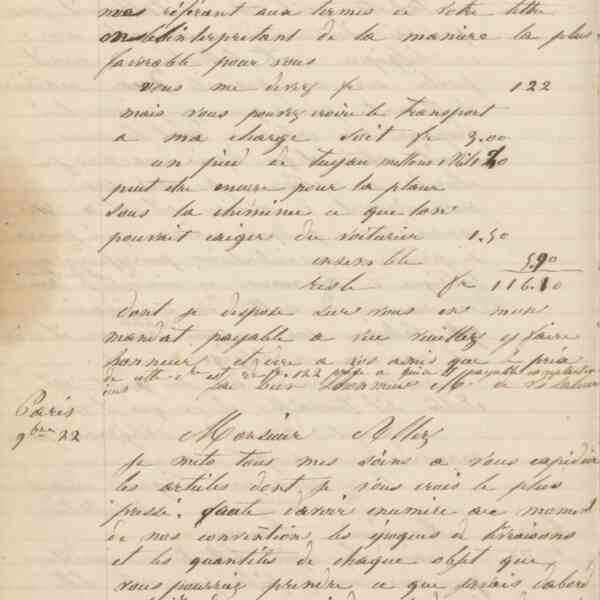 me référant aux termes de votre lettre
en l'interpretant de la manière la plus
favorable pour vous
vous me devez fr 122
mais vous pouvez croire le transport
a ma charge soit fr 3.00
un pied de tuyau mettons
peut etre encore pour la place
sous la cheminée a que lon
pouvait exiger du voiturier 1.50
ensemble 5.90
reste fr 116.10
dont je dispose sur vous en mon
mandat payable a vue veuillez y faire
honneur et dire a vos amis que
de cette 122 payable
de
Paris
9bre 22
Monsieur Allez
Je mets tous mes soins a vous expedier
les articles dont je vous crois le plus
pressé. faute davoir enuméré au moment
de nos conventions les époques de livraisons
et les quantités de chaque objet que
vous pourriez prendre a que javais dabord